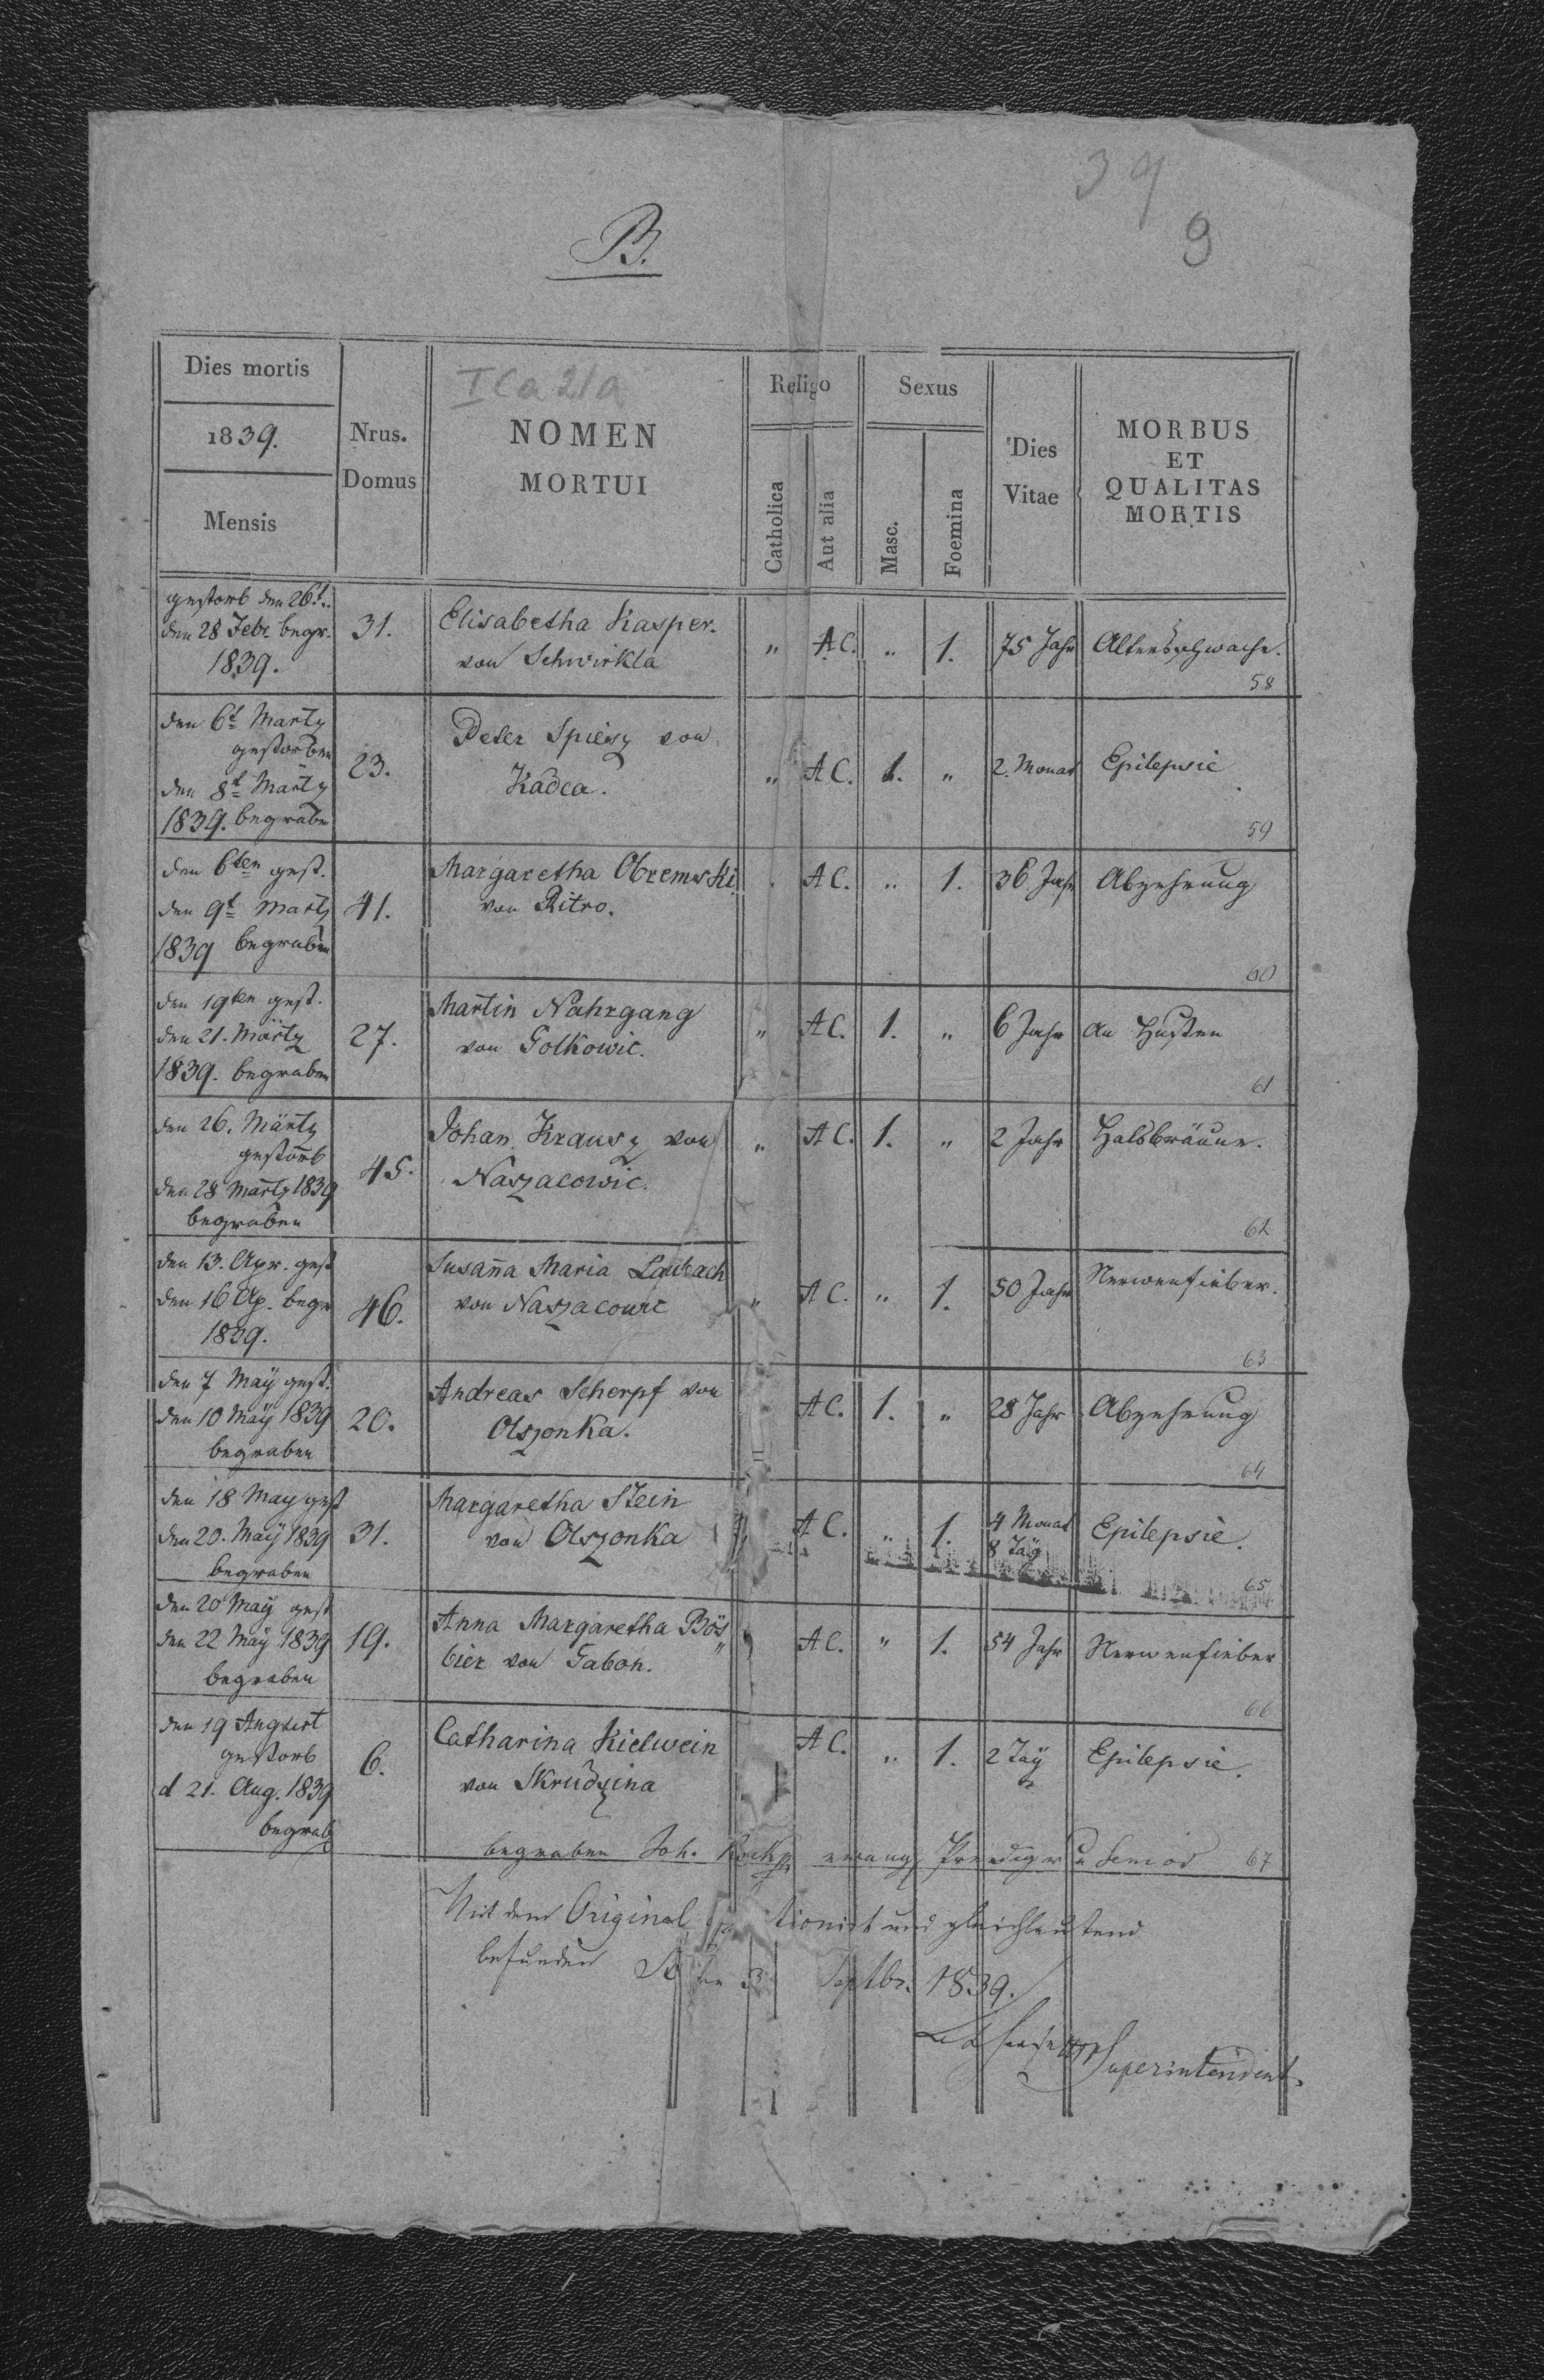 39
9
B.
Dies mortis
1839.
Mensis
Nrus.
Domus
I Ca 2/a
NOMEN
MORTUI
Religo
Catholica
Aut alia
Sexus
Masc.
Foemina
Dies
Vitae
MORBUS
ET
QUALITAS
MORTIS
gestorb den 26t.
den 28 Febr begr.
1839.
31.
Elisabetha Kasper.
von Schwirkla
" A.C. " 1. 75 Jahr Altersschwäche.
58
den 6t Martz
gestorben
den 8t Märtz
1839. begrabn
23.
Peter Spiesz von
Kadca.
" A C. 1. " 2. Monat Epilepsie
59
den 6ten gest.
den 9t Martz
1839 begraben
41.
Margaretha Obremski
von Ritro.
A C. " 1. 36 Jahr Abzehrung
60
den 19ten gest.
den 21. Märtz
1839. begraben
27.
Martin Nahrgang
von Golkowic.
" A C. 1. " 6 Jahr an Husten
61
den 26. Märtz
gestorb
den 28 Martz 1839
begraben
45.
Johan Krausz von
Naszacowic.
" A C. 1. " 2 Jahr Halsbräune.
62
den 13. Apr. gest
den 16 Ap. begr
1839.
46.
Susan̄a Maria Laubach
von Naszacowic
" A C. " 1. 50 Jahr Nervenfieber.
63
den 7 Maÿ gest.
den 10 Maÿ 1839
begraben
20.
Andreas Scherpf von
Olszonka.
A C. 1. " 28 Jahr Abzehrung
64
den 18 May gest
den 20. Maÿ 1839
begraben
31.
Margaretha Stein
von Olszonka
A C. " 1. 4 Monat
8 Täg
Epilepsie.
65
den 20 Maÿ gest
den 22 Maÿ 1839
begraben
19.
Anna Margaretha Bös"
bier von Gabon.
A C. " 1. 54 Jahr Nerwenfieber
66
den 19 Angust
gestorb
d 21. Aug. 1839
begrab
6.
Catharina Kielwein
von Skrudzina
A C. " 1. 2 Täg Epilepsie.
begraben Joh. evang Prediger u Senior 67
Mit dem Original und gleichlautend
befunden Septbr. 1839.
Superintendent.